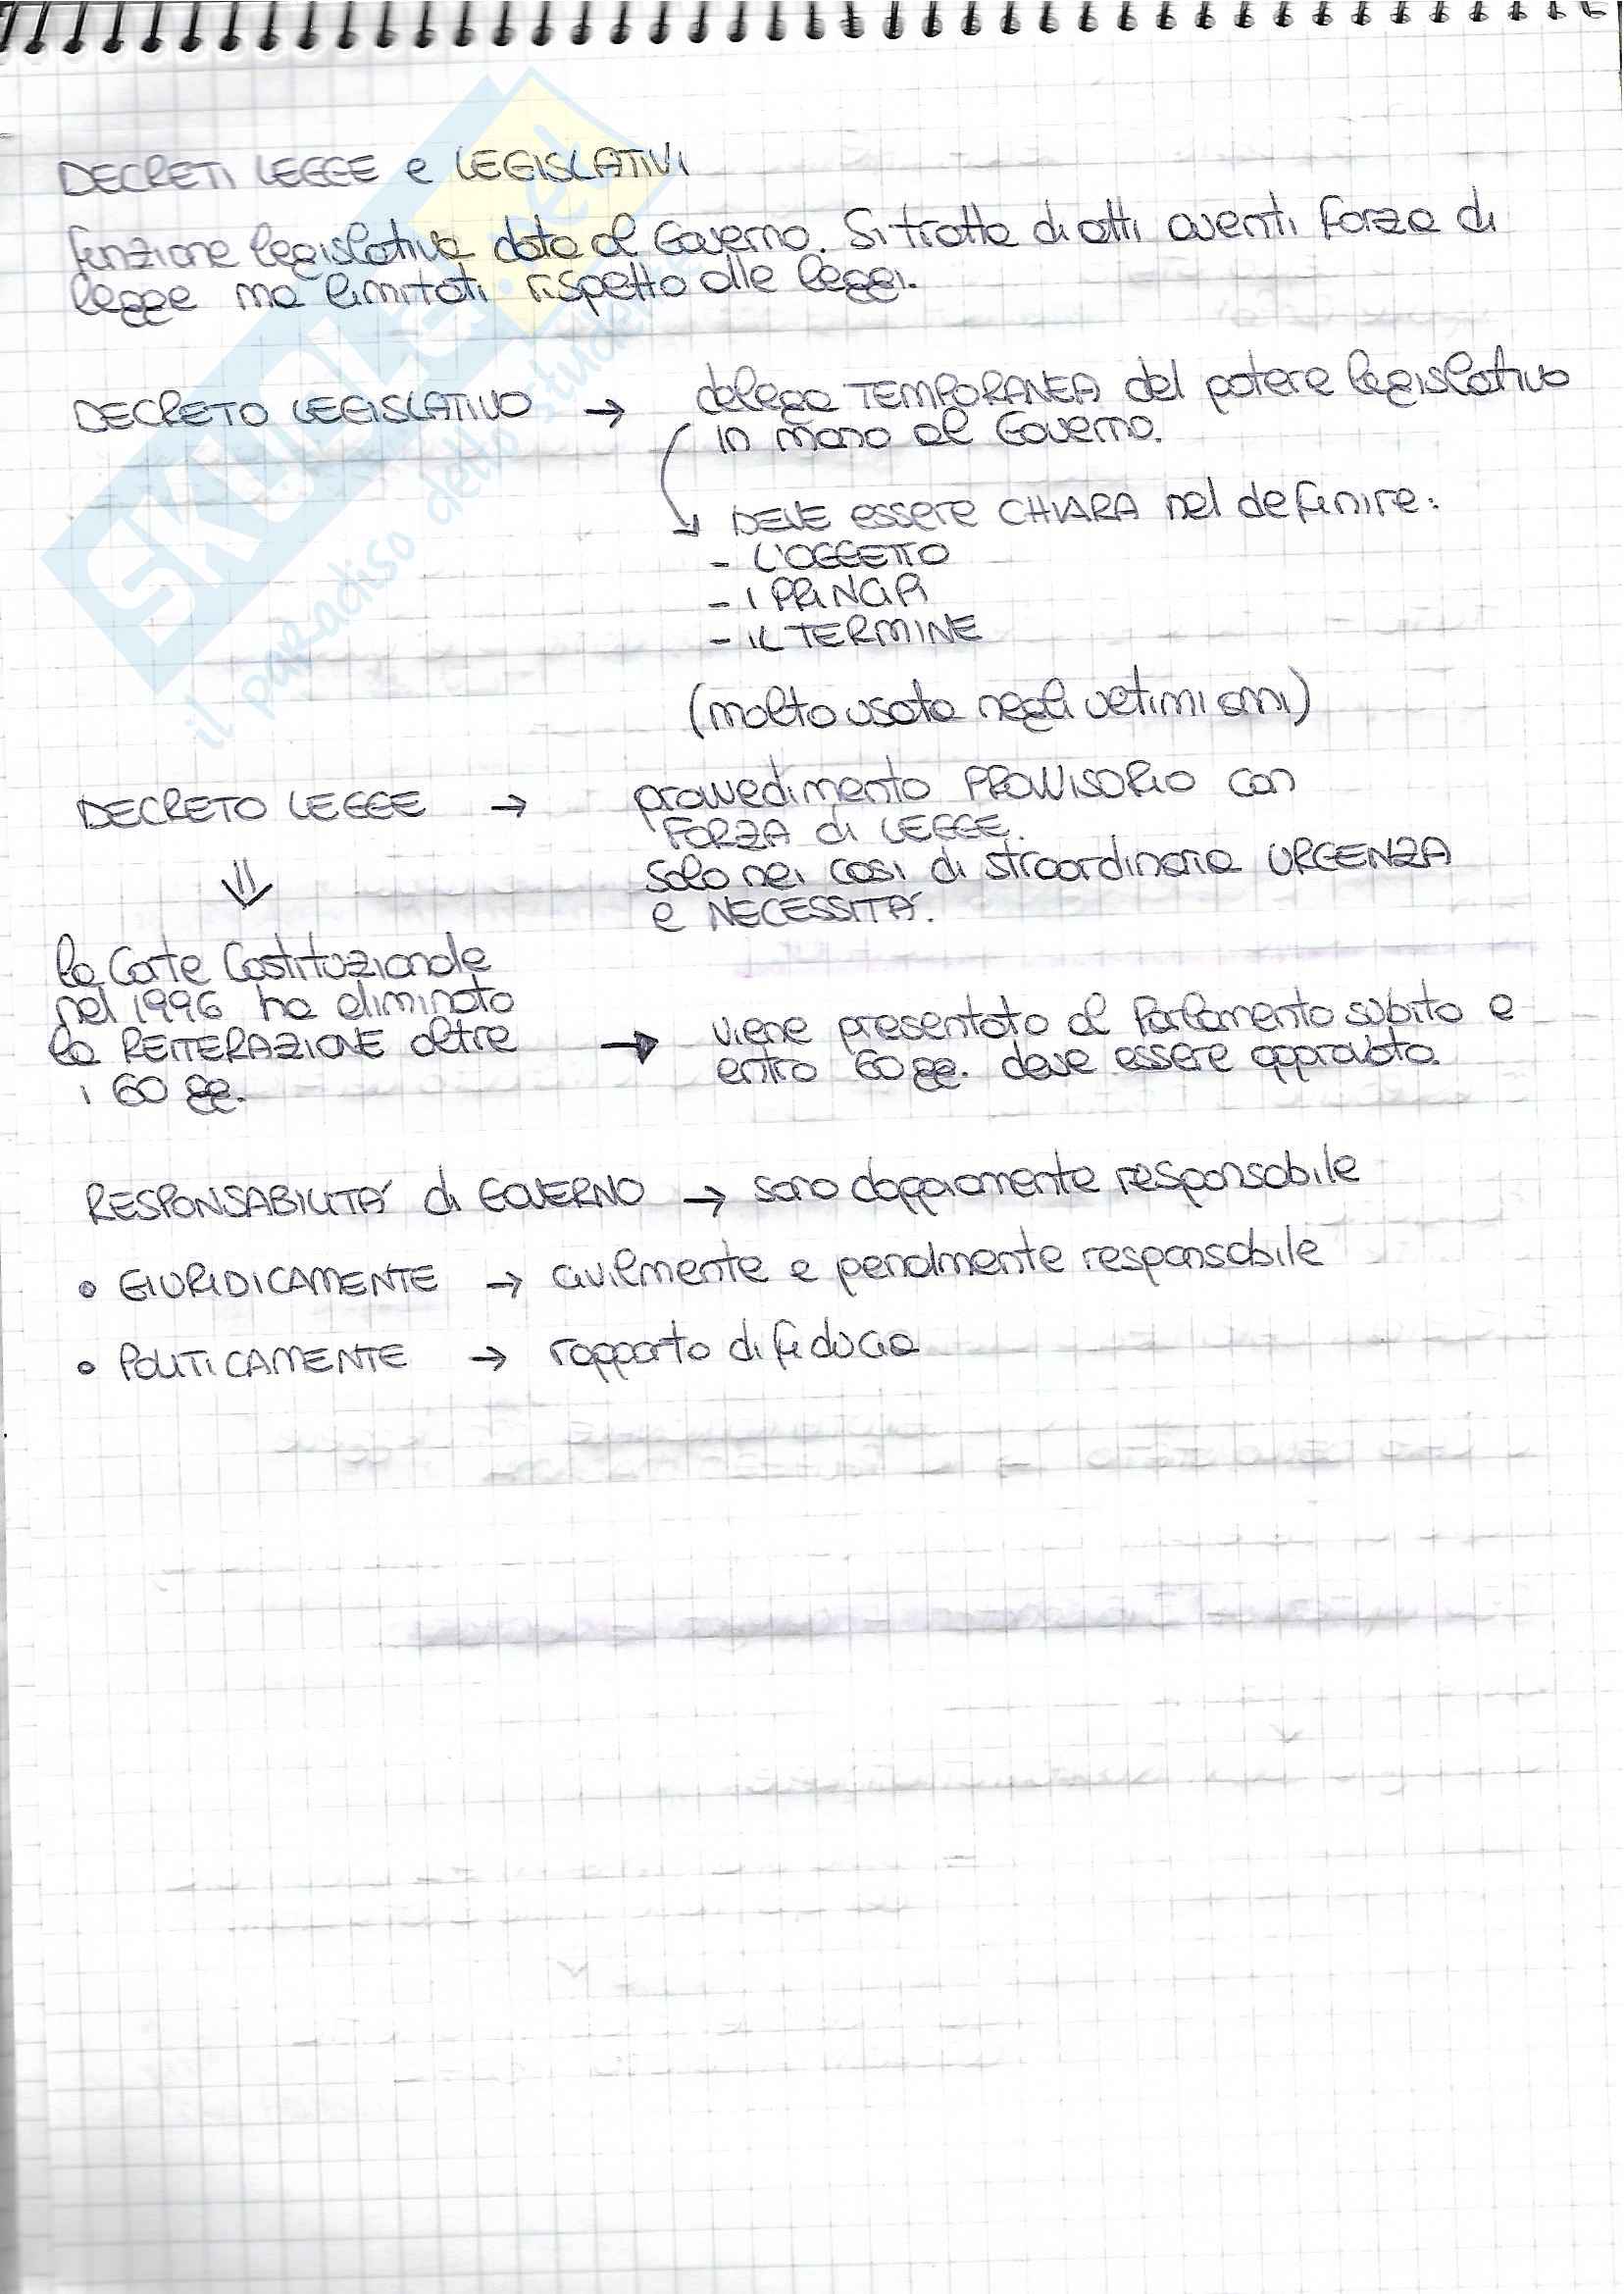 DECRETI LEGGE e LEGISLATIVI
funzione legislativa data al Governo. Si tratta di atti aventi forza di
legge ma limitati rispetto alle leggi.
DECRETO LEGISLATIVO → delega TEMPORANEA del potere legislativo
in mano al Governo.
DEVE essere CHIARA nel definire:
- L'OGGETTO
- I PRINCIPI
- IL TERMINE
(molto usata negli ultimi anni)
DECRETO LEGGE → provvedimento PROVVISORIO con
FORZA di LEGGE.
Solo nei casi di straordinaria URGENZA
e NECESSITA'.
⇓
la Corte Costituzionale
nel 1996 ha eliminato
la REITERAZIONE oltre
i 60 gg.
→ viene presentato al Parlamento subito e
entro 60 gg. deve essere approvata.
RESPONSABILITA' di GOVERNO → sono doppiamente responsabile
• GIURIDICAMENTE → civilmente e penalmente responsabile
• POLITICAMENTE → rapporto di fiducia
SKUOLA.net
il paradiso dello studente